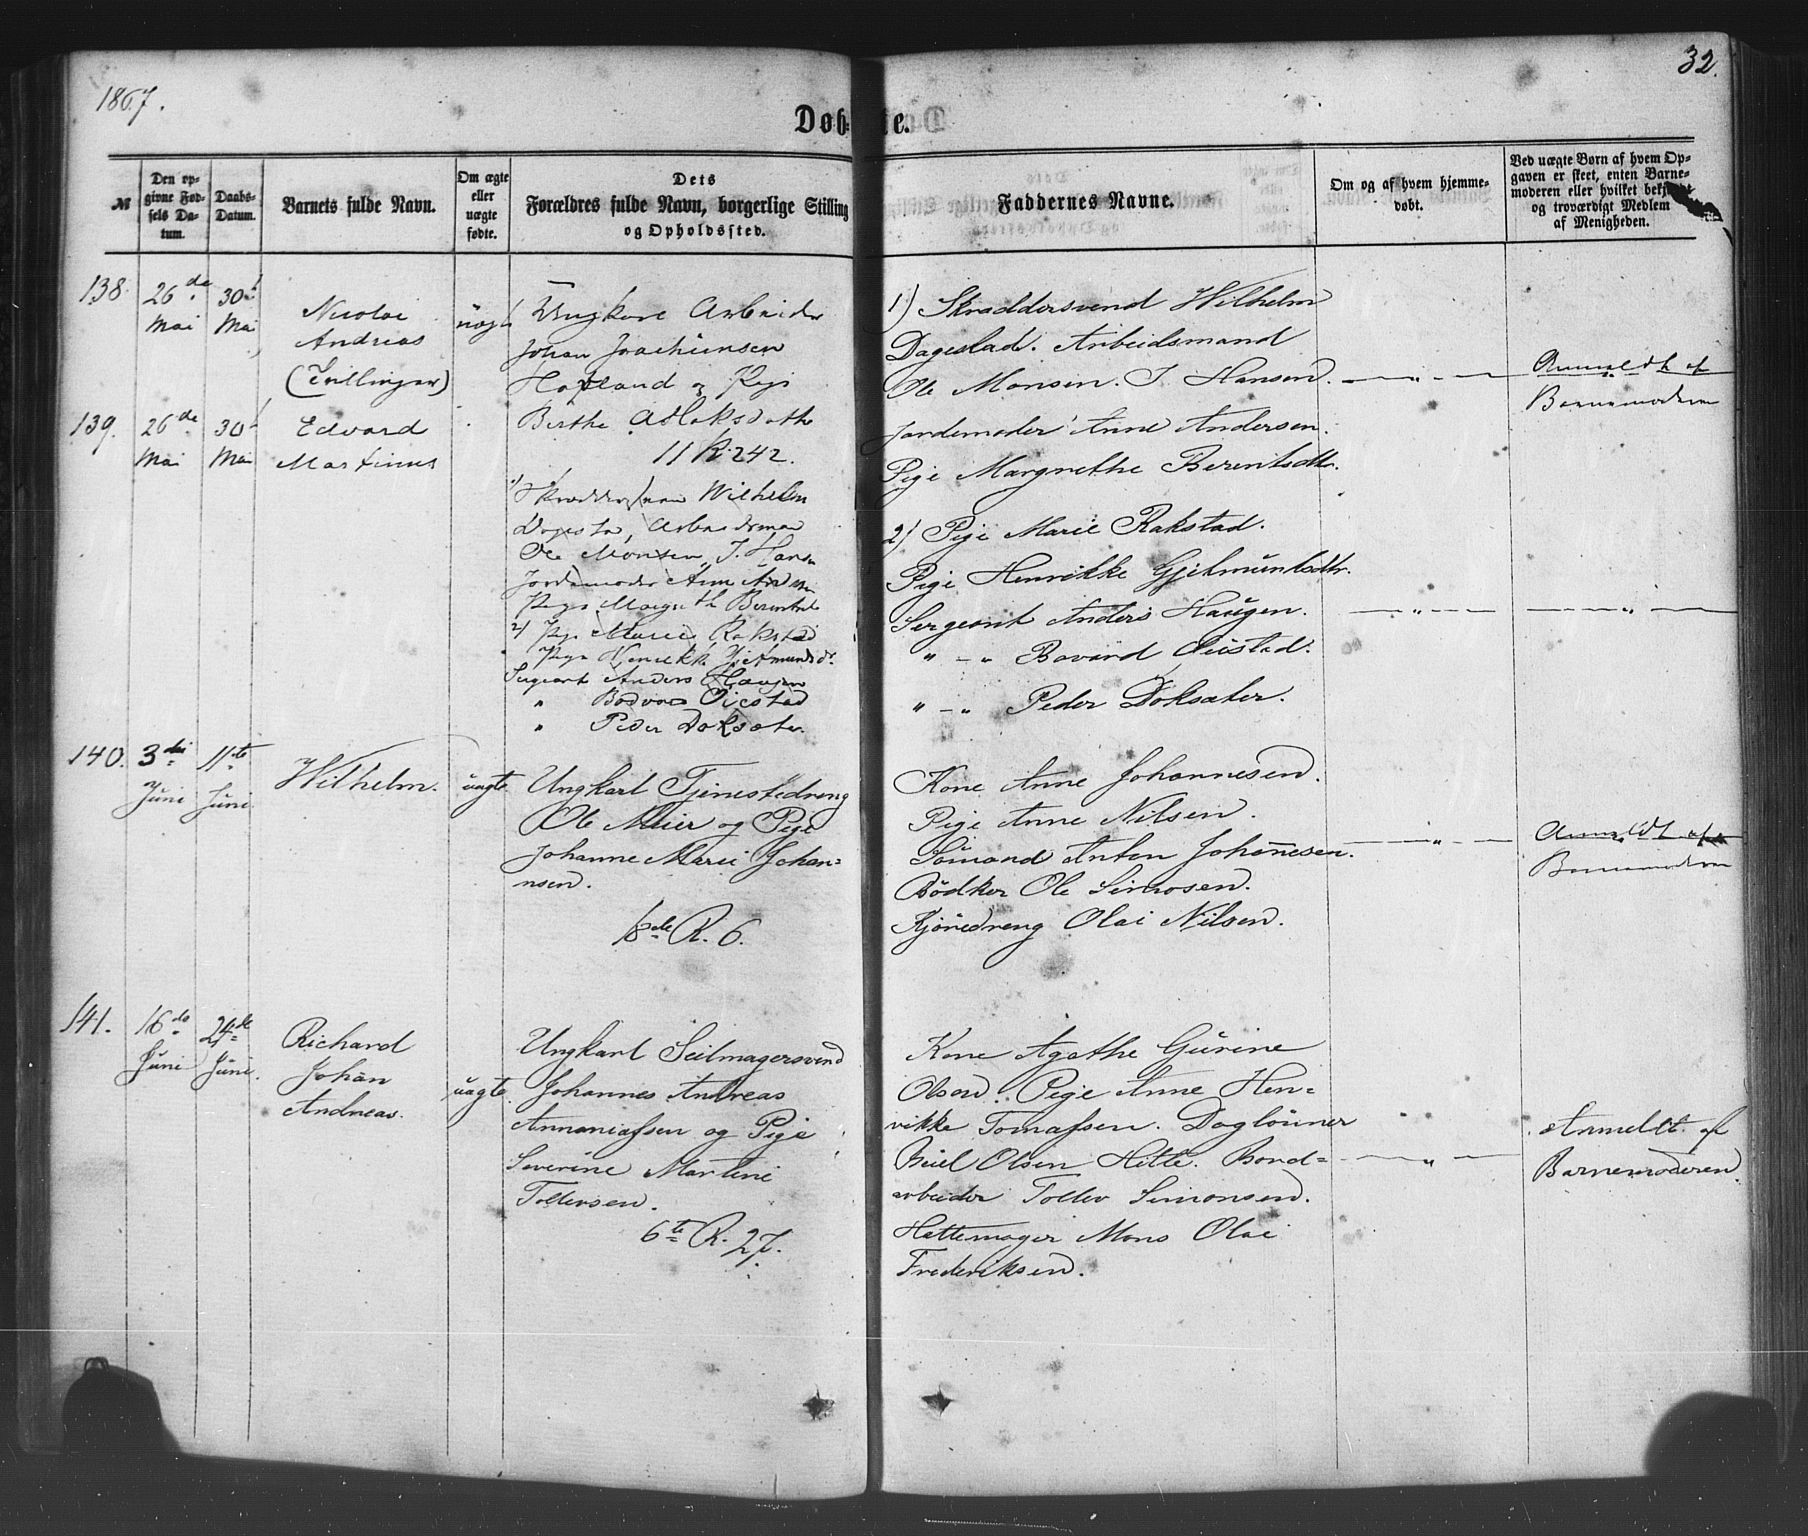 1867.
32.
Døbte.
№
Den opgivne Fødsels Datum.
Daabs-Datum.
Barnets fulde Navn.
Om ægte eller uægte fødte.
Dets Forældres fulde Navn, borgerlige Stilling og Opholdssted.
Faddernes Navne.
Om og af hvem hjemmedøbt.
Ved uægte Børn af hvem Opgaven er skeet, enten Barnemoderen eller hvilket bekjendt og troværdigt Medlem af Menigheden.
138.
26de Mai
30te Mai
Nicolai
Andreas
(Tvillinger)
uægte
Ungkarl Arbeider
Johan Joachimsen
Hopland og Pige
Berthe Aslaksdatter
11 R. 242.
1) Skræddersvend Wilhelm
Dagestad. Arbeidsmand
Ole Monsen. J. Hansen.
Jordemoder Anne Andersen.
Pige Margrethe Berentsdtr.
Anmeldt af
Barnemoderen
139.
26de Mai
30te Mai
Edvard
Martinus
1) Wilhelm
Dagestad, Arbeidsman
Ole Monsen, J. Hansen
Jordemoder Anne
Pige Margrethe
2) Pige Marie Rakstad
Pige Henrikke
Sergeant Anders Haugen
" Peder Doksæter
2) Pige Marie Rakstad.
Pige Henrikke Gjetmundsdtr.
Sergeant Anders Haugen.
" - " Bovard
" - " Peder Doksæter.
140.
3die Juni
11te Juni
Wilhelm.
uægte
Ungkarl Tjenestedreng
Ole Meier og Pige
Johanne Marie Johan=
nsen.
18de R. 6.
Kone Anne Johannesen.
Pige Anne Nilsen.
Sømand Anton Johannesen.
Bødker Ole Simosen.
Kjøredreng Olai Nilsen.
Anmeldt af
Barnemoderen
141.
16de Juni
24de Juni.
Richard
Johan
Andreas.
uægte.
Ungkarl Seilmagersvend
Johannes Andreas
Annaniassen og Pige
Severine Martine
Tollersen.
6te R. 27.
Kone Agathe Gurine
Olsen. Pige Anne Hen=
rikke Tomassen. Daglønner
Olsen Hitle. Bord=
arbeider Tollev Simonsen.
Hattemager Mons Olai
Frederiksen.
Anmeldt af
Barnemoderen.